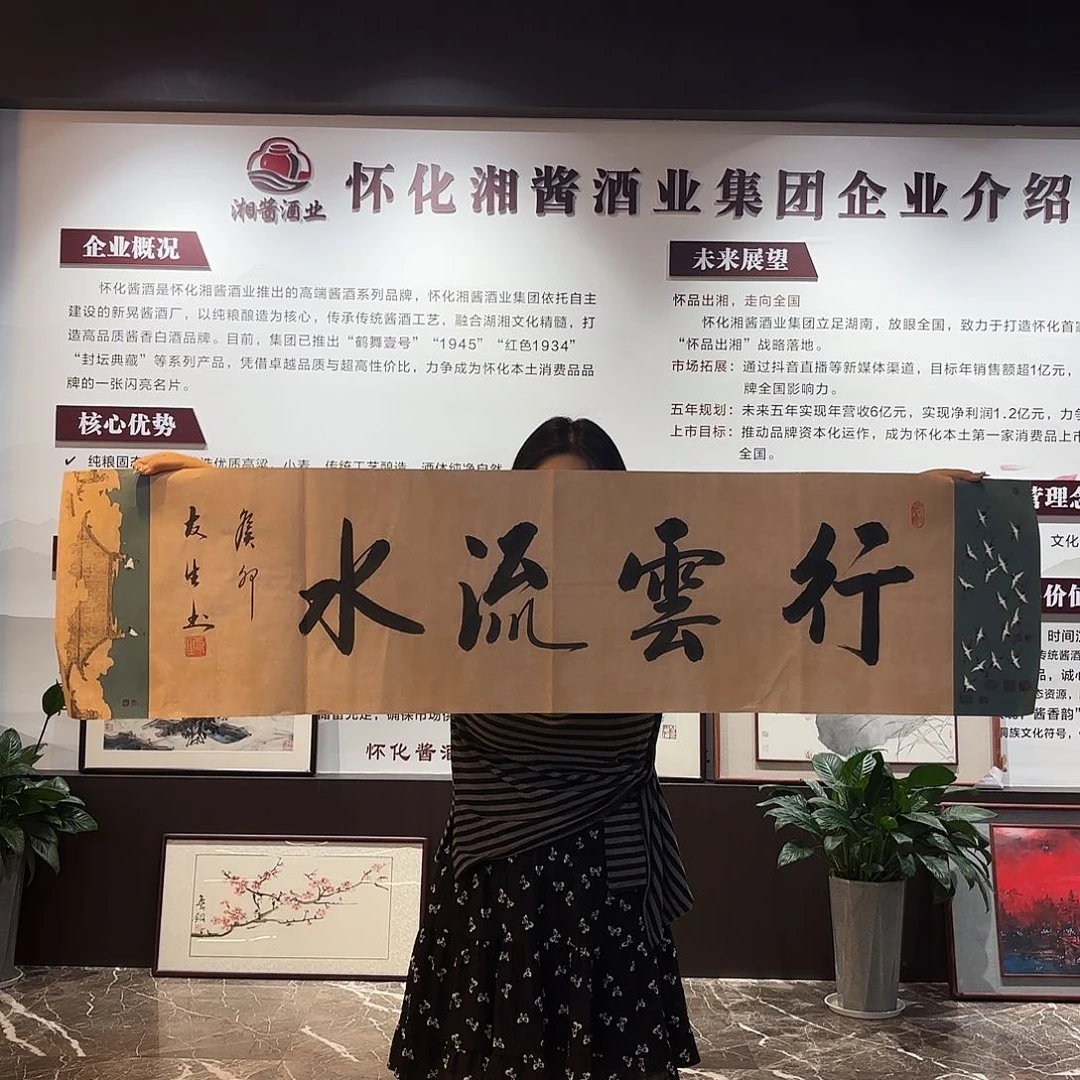 湘酱酒业
怀化湘酱酒业集团企业介绍
企业概况
怀化酱酒是怀化湘酱酒业推出的高端酱酒系列品牌，怀化湘酱酒业集团依托自主
建设的新晃酱酒厂，以纯粮酿造为核心，传承传统酱酒工艺，融合湖湘文化精髓，打
造高品质酱香白酒品牌。目前，集团已推出“鹤舞壹号”“1945”“红色1934”
“封坛典藏”等系列产品，凭借卓越品质与超高性价比，力争成为怀化本土消费品品
牌的一张闪亮名片。
核心优势
✓ 纯粮固态
选优质高粱、小麦，传统工艺酿造，酒体纯净自然
未来展望
怀品出湘，走向全国
怀化湘酱酒业集团立足湖南，放眼全国，致力于打造怀化首家
“怀品出湘”战略落地。
市场拓展：通过抖音直播等新媒体渠道，目标年销售额超1亿元，
牌全国影响力。
五年规划：未来五年实现年营收6亿元，实现净利润1.2亿元，力争
上市目标：推动品牌资本化运作，成为怀化本土第一家消费品上市
全国。
管理念
文化
价值
时间
传统酱酒
品，诚心
态资源，
酱香韵”
侗族文化符号，
行雲流水
癸卯
友生书
确保市场供
怀化酱酒